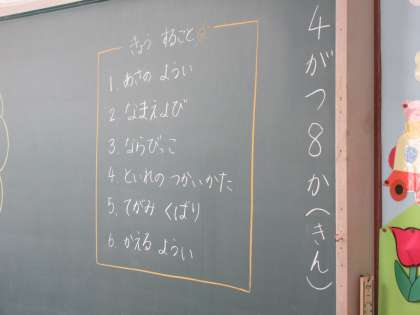 4がつ8か(きん)
きょう すること
1. あさの ようい
2. なまえよび
3. ならびっこ
4. といれの つかいかた
5. てがみ くばり
6. かえる ようい